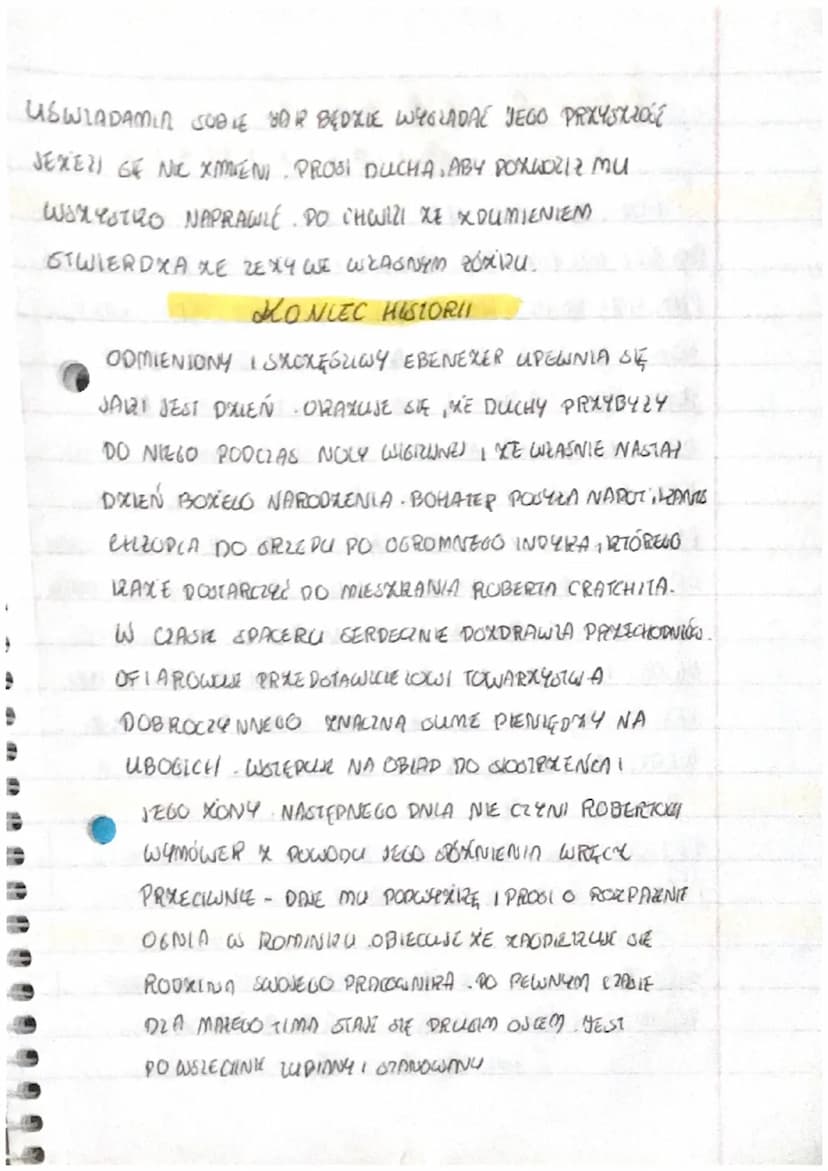 UŚWIADAMIA SOBIE JAK BĘDZIE WYGLĄDAĆ JEGO PRZYSZŁOŚĆ
JEŻELI SIĘ NIE ZMIENI. PROSI DUCHA, ABY POZWOLIŁ MU
WSZYSTKO NAPRAWIĆ. PO CHWILI ZE ZDUMIENIEM
STWIERDZA ŻE LEŻY WE WŁASNYM ŁÓŻKU.
KONIEC HISTORII
ODMIENIONY I SZCZĘŚLIWY EBENEZER UPEWNIA SIĘ
JAKI JEST DZIEŃ. OKAZUJE SIĘ, ŻE DUCHY PRZYBYŁY
DO NIEGO PODCZAS NOCY WIGILIJNEJ I ŻE WŁAŚNIE NASTAŁ
DZIEŃ BOŻEGO NARODZENIA. BOHATER POSYŁA NAPOTKANEGO
CHŁOPCA DO SKLEPU PO OGROMNEGO INDYKA, KTÓREGO
KAŻE DOSTARCZYĆ DO MIESZKANIA ROBERTA CRATCHITA.
W CZASIE SPACERU SERDECZNIE POZDRAWIA PRZECHODNIÓW.
OFIAROWUJE PRZEDSTAWICIELOWI TOWARZYSTWA
DOBROCZYNNEGO ZNACZNĄ SUMĘ PIENIĘDZY NA
UBOGICH. WSTĘPUJE NA OBIAD DO SIOSTRZEŃCA I
JEGO ŻONY. NASTĘPNEGO DNIA NIE CZYNI ROBERTOWI
WYMÓWEK Z POWODU JEGO SPÓŹNIENIA WRĘCZ
PRZECIWNIE - DAJE MU PODWYŻKĘ I PROSI O ROZPALENIE
OGNIA W KOMINKU. OBIECUJE ŻE ZAOPIEKUJE SIĘ
RODZINĄ SWOJEGO PRACOWNIKA. PO PEWNYM CZASIE
DLA MAŁEGO TIMA STAJE SIĘ DRUGIM OJCEM. JEST
POWSZECHNIE LUBIANY I SZANOWANY